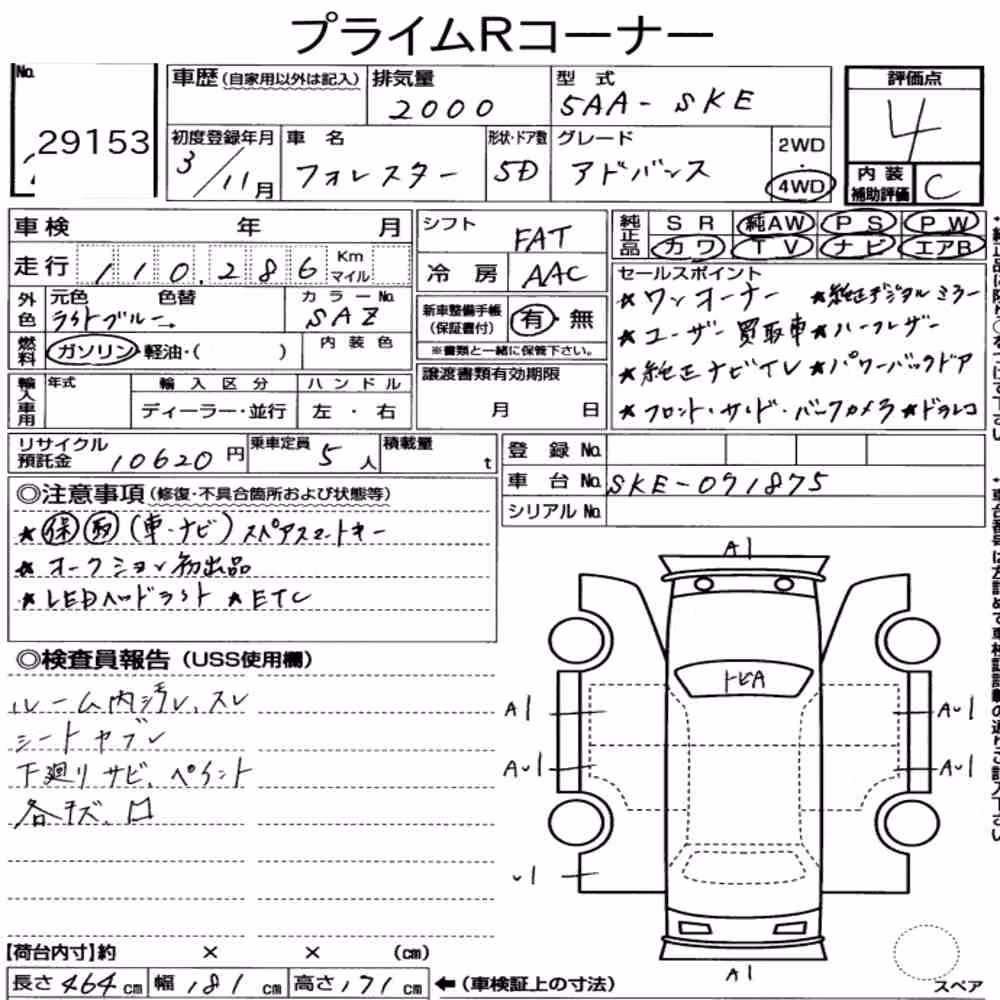 プライムRコーナー
No.
29153
車歴(自家用以外は記入)
排気量
2000
型 式
5AA-SKE
評価点
4
内装
補助評価
C
初度登録年月
3/11月
車 名
フォレスター
形状・ドア数
5D
グレード
アドバンス
2WD
・
4WD
車検 年 月
シフト
FAT
純正品
SR 純AW PS PW
カワ TV ナビ エアB
走行
110,286
Km
マイル
冷房
AAC
セールスポイント
★ワンオーナー ★純正デジタルミラー
★ユーザー買取車 ★ハーフレザー
★純正ナビTV ★パワーバックドア
★フロント・サイド・バックカメラ ★ドラレコ
外色
元色 色替
ライトブルー→
カラーNo.
SAZ
新車整備手帳
(保証書付)
有・無
※書類と一緒に保管下さい。
燃料
ガソリン・軽油・( )
内装色
譲渡書類有効期限
月 日
輸入車用
年式
輸入区分
ディーラー・並行
ハンドル
左・右
リサイクル
預託金
10620円
乗車定員
5人
積載量
t
登録No.
車台No.
SKE-071875
シリアルNo.
◎注意事項(修復・不具合箇所および状態等)
★保 取(車・ナビ)スペアスマートキー
★オークション初出品
★LEDヘッドライト ★ETC
◎検査員報告(USS使用欄)
ルーム内汚レ、スレ
シートヤブレ
下廻りサビ、ペイント
各キズ、凹
A1
トビA
A1
AU1
AU1
AU1
U1
A1
スペア
【荷台内寸】約 × × (cm)
長さ464cm 幅181cm 高さ171cm ←(車検証上の寸法)